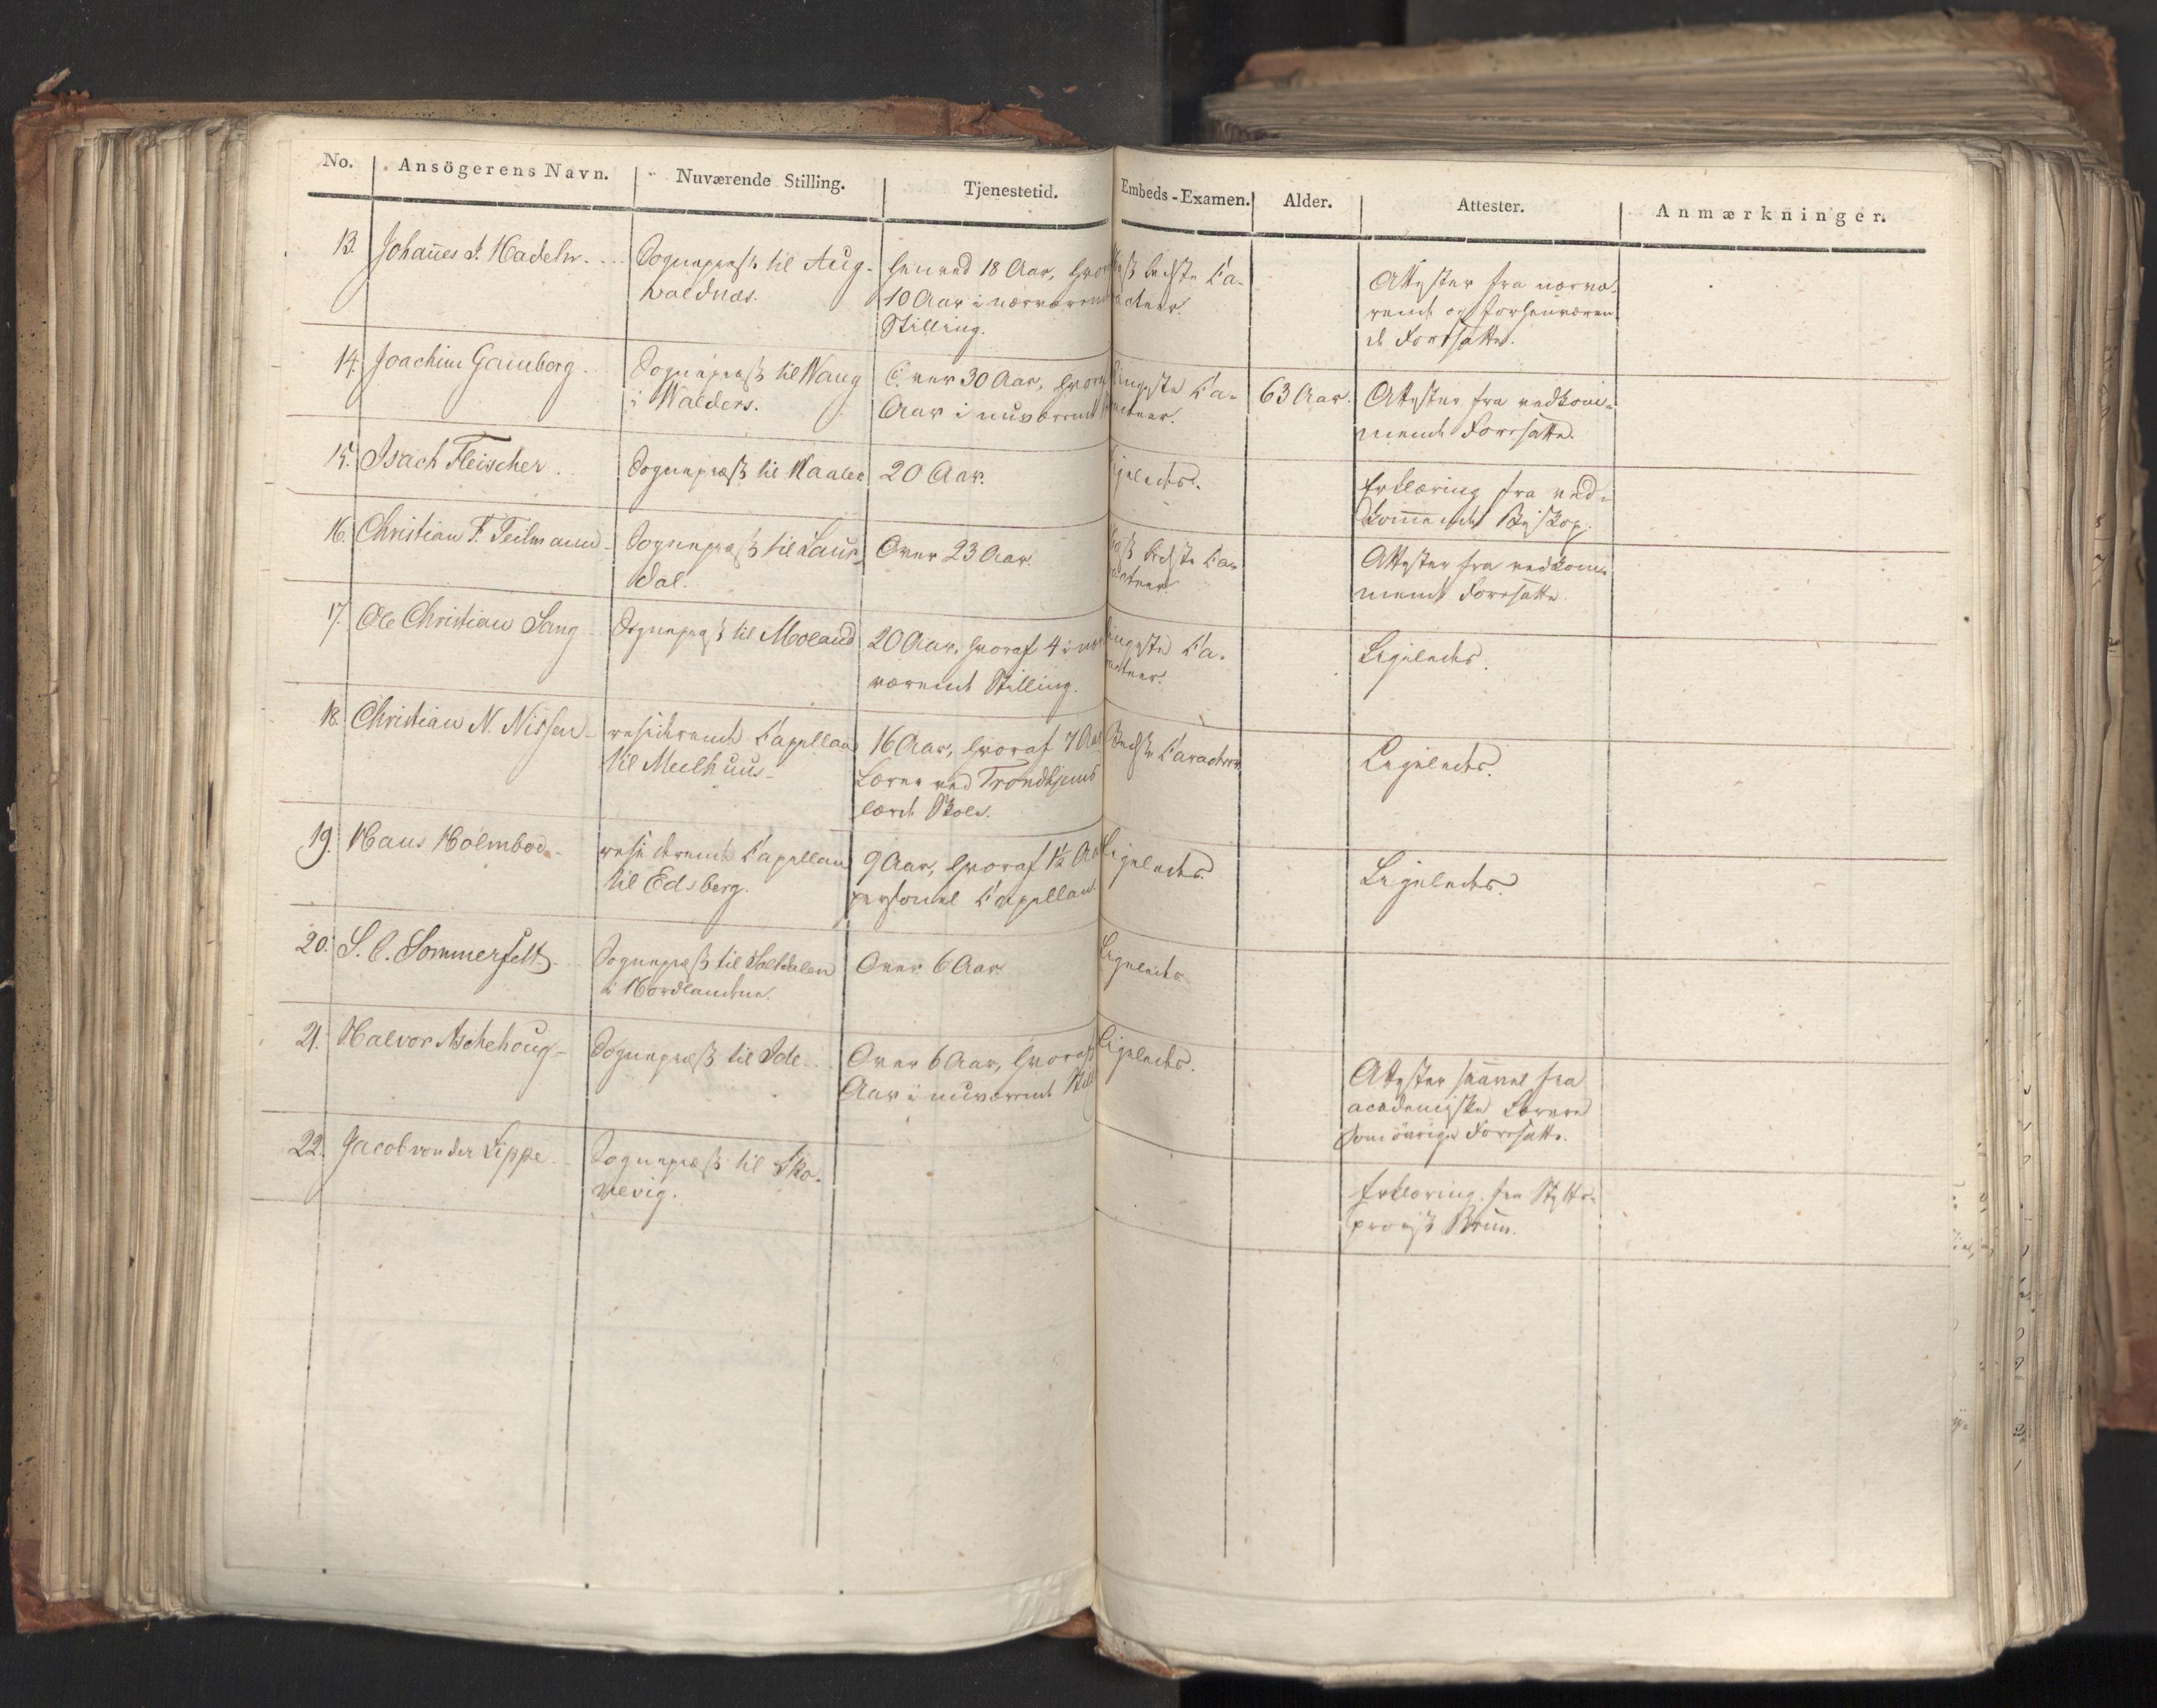 No. Ansögerens Navn. Nuværende Stilling. Tjenestetid. Embeds-Examen. Alder. Attester. Anmærkninger.
13. Johañes J. Hadeln. Sognepræst til Aug-
valdnæs.
henved 18 Aar, hvor
10 Aar i nærværend
Stilling.
bedste Ca-
racteer.
Attester fra nærvæ-
rende og forhenværen
de Foresatte.
14. Joachim Gamborg Sognepræst til Wang
i Walders.
Over 30 Aar,
Aar i nuværende
ringeste Ca-
racteer.
63 Aar.
Attester fra vedkom-
mende Foresatte.
15. Isach Fleischer Sognepræst til Waaler 20 Aar. Ligeledes. Erklæring fra ved-
kom̃ende Biskop.
16. Christian F. Teilmann Sognepræst til Laur-
dal.
Over 23 Aar.
bedste Ca-
racteer
Attester fra vedkom-
mende Foresatte.
17. Ole Christian Sang Sognepræst til Moland 20 Aar, hvoraf 4 i nu
værende Stilling.
ringeste Ca-
racteer.
Ligeledes.
18. Christian N. Nissen residerende Capellan
til Meelhuus
16 Aar, hvoraf 7 Aar
Lærer ved Trondhjems
lærde Skole.
Bedste Caracteer Ligeledes.
19. Hans Holmboe residerende Capellan
til Edsberg.
9 Aar, hvoraf 1½ Aar
personel Capellan.
Ligeledes. Ligeledes.
20. S. C. Sommerfelt Sognepræst til Saltdalen
i Nordlandene.
Over 6 Aar Ligeledes
21. Halvor Aschehoug Sognepræst til Ide Over 6 Aar, hvoraf
Aar i nuværende Still
Ligeledes.
Attester saavel fra
academiske Lærere
som øvrige Foresatte.
22. Jacob von der Lippe Sognepræst til
Erklæring fra Stifts-
provst Brun.